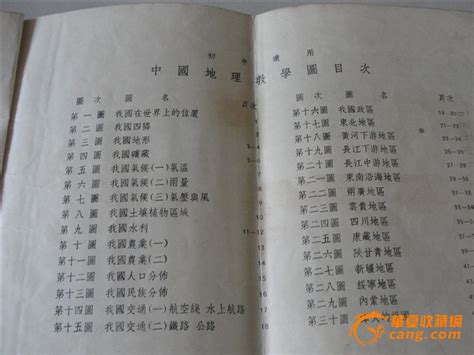 初中適用
中國地理教學圖目次
圖次 圖名 頁次
第一圖 我國在世界上的位置
第二圖 我國四隣
第三圖 我國地形 3—4
第四圖 我國礦藏
第五圖 我國氣候(一)氣溫
第六圖 我國氣候(二)雨量
第七圖 我國氣候(三)氣壓與風
第八圖 我國土壤植物區域
第九圖 我國水利 11—12
第十圖 我國農業(一)
第十一圖 我國農業(二)
第十二圖 我國人口分佈
第十三圖 我國民族分佈
第十四圖 我國交通(一)航空綫 水上航路
第十五圖 我國交通(二)鐵路 公路 18
圖次 圖名 頁次
第十六圖 我國政區 19—20
第十七圖 東北地區
第十八圖 黃河下游地區
第十九圖 長江下游地區 25—26
第二十圖 長江中游地區
第二一圖 東南沿海地區
第二二圖 兩廣地區
第二三圖 雲貴地區
第二四圖 四川地區
第二五圖 康藏地區
第二六圖 陝甘青地區
第二七圖 新疆地區
第二八圖 綏寧地區
第二九圖 內蒙地區
第三十圖
華夏收藏网
cang.com